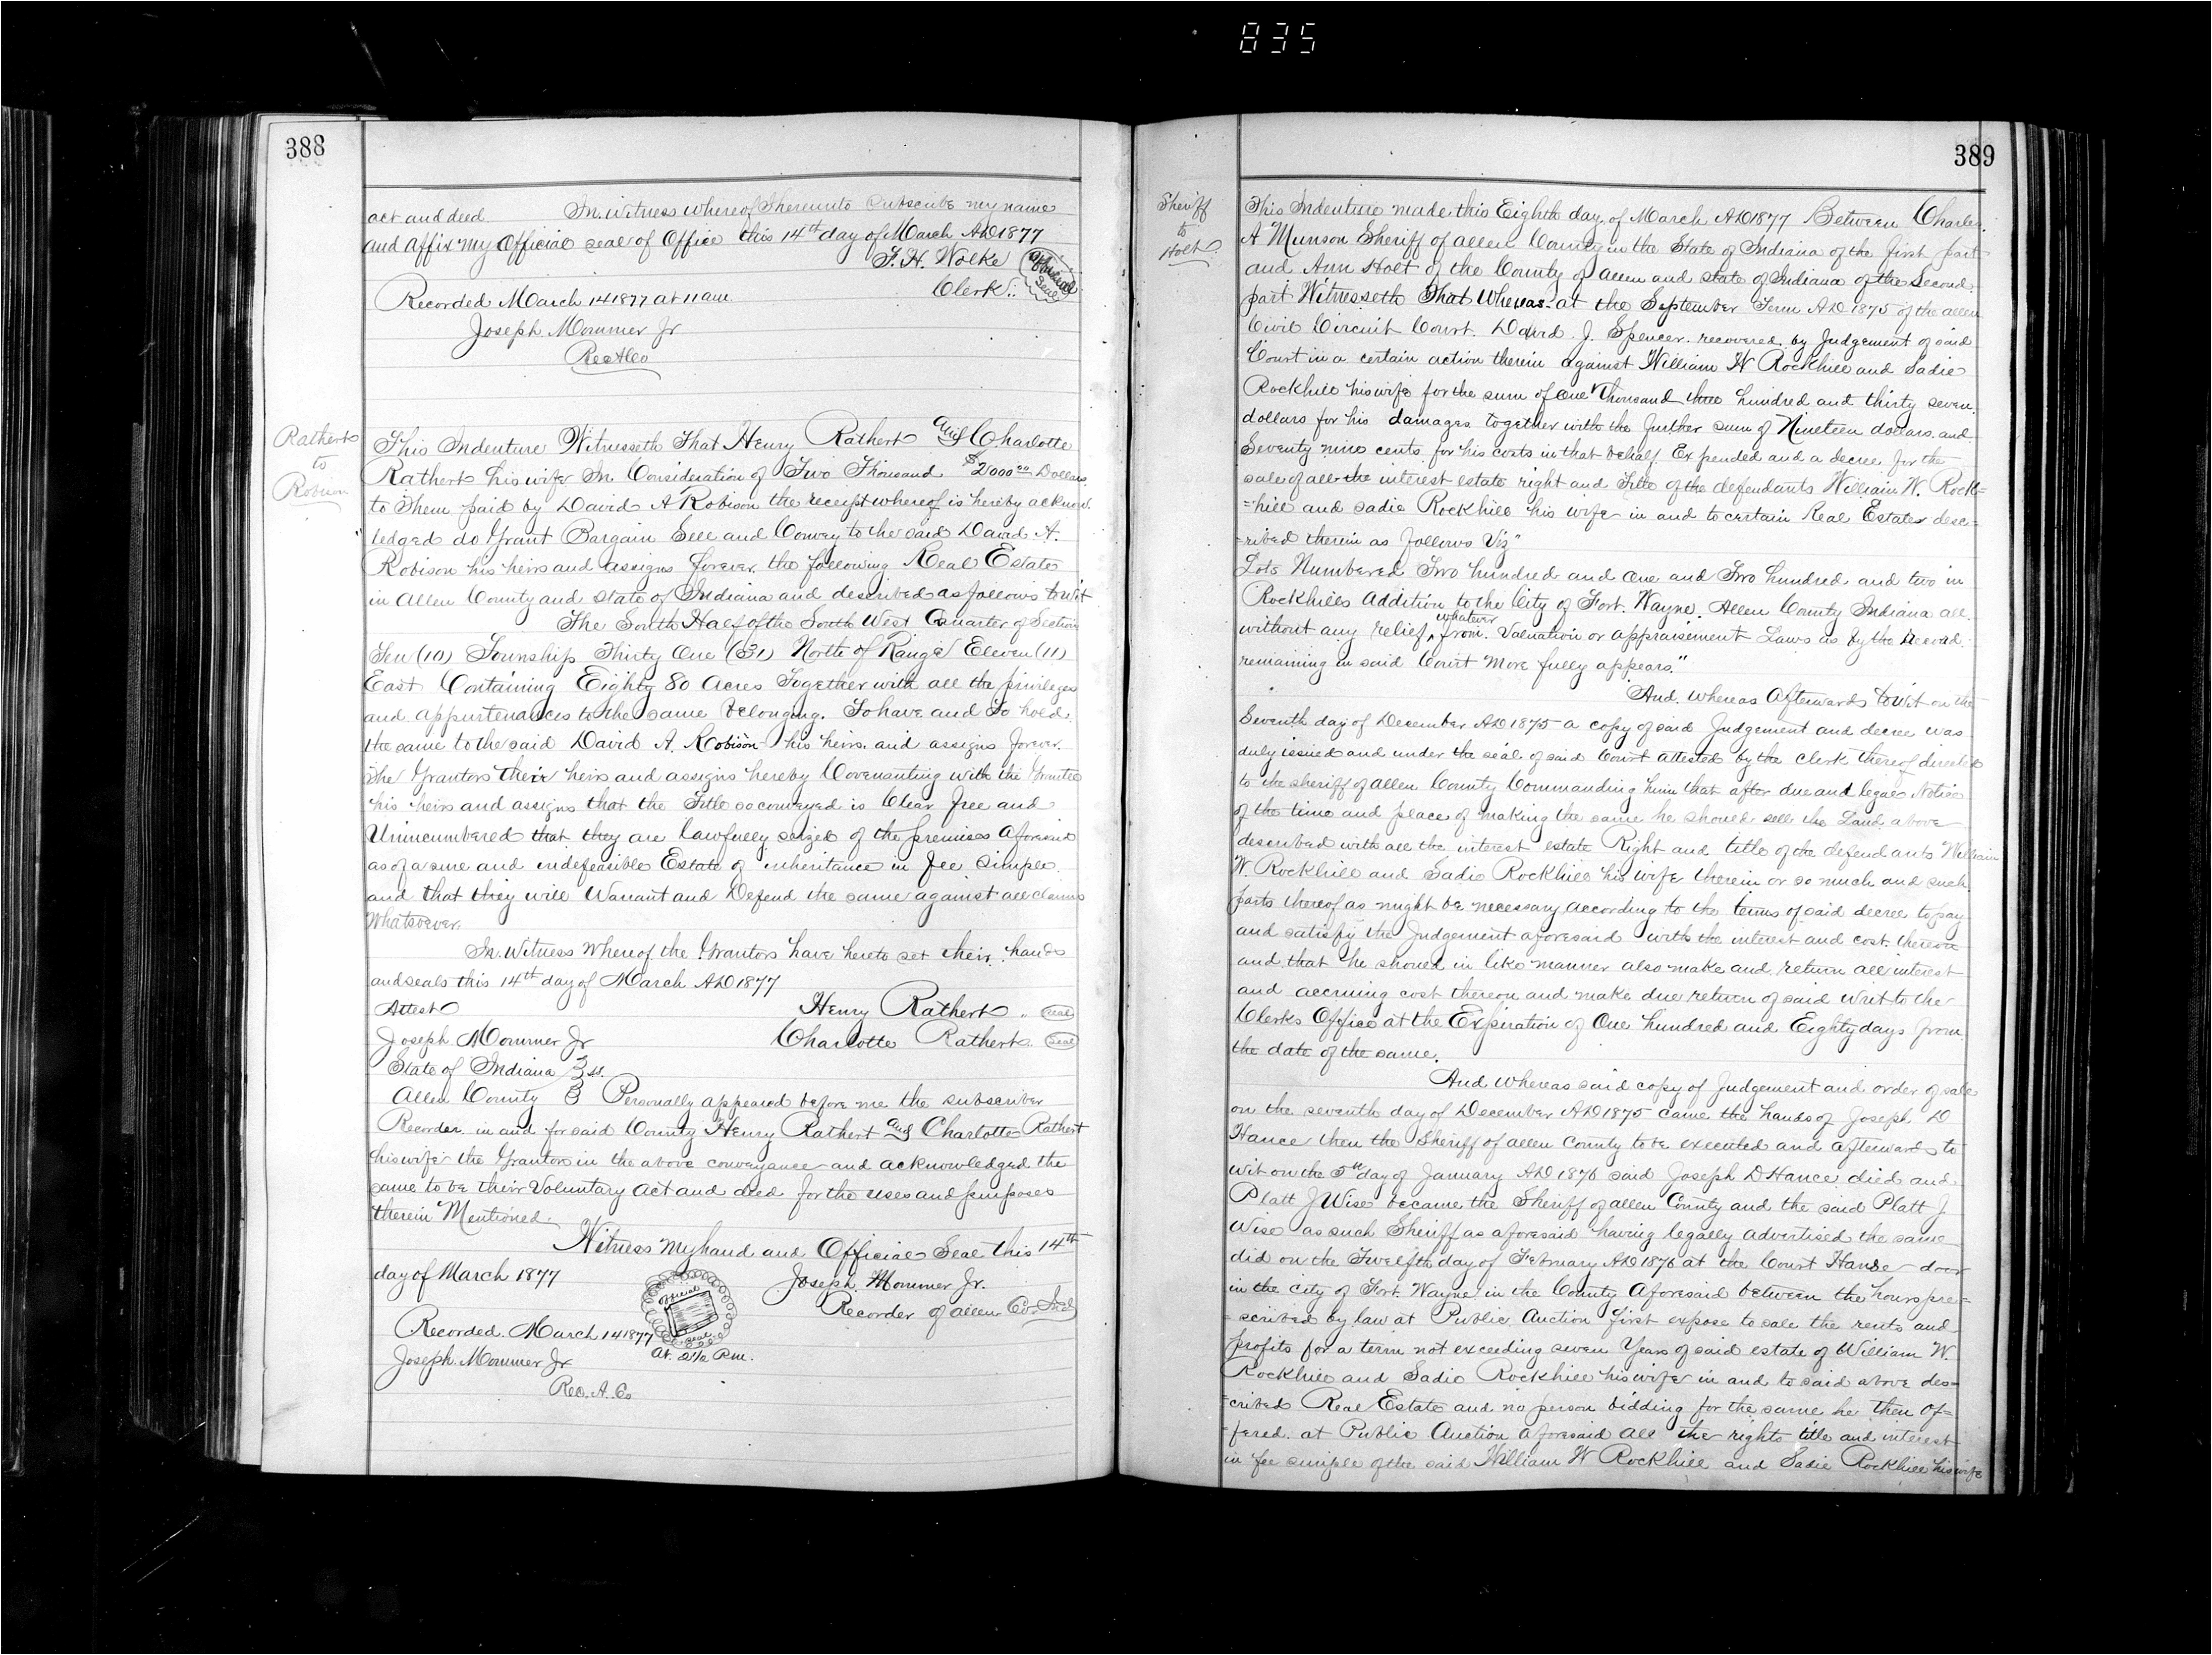 835
388
act and deed. In Witness whereof I hereunto Subscribe my name
and affix my Official seal of Office this 14th day of March AD 1877
F. H. Wolke
Official Seal
Clerk
Recorded March 14 1877 at 11 am
Joseph Mommer Jr
Rec A Co
Rathert
to
Robison
This Indenture Witnesseth That Henry Rathert and Charlotte
Rathert his wife In Consideration of Two Thousand $2000 00 Dollars
to Them paid by David A Robison the receipt whereof is hereby acknow
ledged do Grant Bargain Sell and Convey to the said David A.
Robison his heirs and assigns forever, the following Real Estate
in Allen County and State of Indiana and described as follows to wit
The South Half of the South West Quarter of Section
Ten (10) Township Thirty One (31) North of Range Eleven (11)
East Containing Eighty 80 Acres Together with all the privileges
and appurtenances to the same belonging. To have and To hold
the same to the said David A. Robison his heirs and assigns forever.
The Grantors their heirs and assigns hereby Covenanting with the Grantee
his heirs and assigns that the Title so conveyed is Clear free and
Unincumbered that they are lawfully seized of the premises aforesaid
as of a sure and indefeasible Estate of inheritance in fee simple
and that they will Warrant and Defend the same against all claims
Whatsoever.
In Witness Whereof the Grantors have hereto set their hands
and seals this 14th day of March AD 1877
Attest Henry Rathert seal
Joseph Mommer Jr Charlotte Rathert Seal
State of Indiana } ss.
Allen County } Personally appeared before me the subscriber
Recorder in and for said County Henry Rathert and Charlotte Rathert
his wife the Grantors in the above conveyance and acknowledged the
same to be their Voluntary act and deed for the uses and purposes
therein Mentioned.
Witness My hand and Official Seal this 14th
day of March 1877 Joseph Mommer Jr.
Official Seal
Recorder of Allen Co Ind
Recorded March 14 1877
At 2 1/2 P.m.
Joseph Mommer Jr
Rec. A. Co
389
Sheriff
to
Holt
This Indenture made this Eighth day of March AD 1877 Between Charles
A Munson Sheriff of Allen County in the State of Indiana of the first part
and Ann Holt of the County of Allen and State of Indiana of the Second
part Witnesseth That Whereas at the September Term AD 1875 of the Allen
Civil Circuit Court. David J. Spencer recovered by Judgement of said
Court in a certain action therein against William W Rockhill and Sadie
Rockhill his wife for the sum of One Thousand three hundred and thirty seven
dollars for his damages together with the further sum of Nineteen dollars and
Seventy nine cents for his costs in that behalf Expended and a decree for the
sale of all the interest estate right and Title of the defendants William W. Rock=
=hill and Sadie Rockhill his wife in and to certain Real Estate desc=
=ribed therein as follows Viz"
Lots Numbered Two hundred and One and Two hundred and two in
Rockhills Addition to the City of Fort. Wayne. Allen County Indiana all
without any relief whatever from. Valuation or appraisement Laws as by the Record
remaining in said Court more fully appears."
And whereas Afterwards to wit on the
Seventh day of December AD 1875 a copy of said Judgement and decree was
duly issued and under the seal of said Court attested by the clerk thereof directed
to the sheriff of Allen County Commanding him that after due and legal Notice
of the time and place of making the same he should sell the Land above
described with all the interest estate Right and title of the defendants William
W. Rockhill and Sadie Rockhill his wife therein or so much and such
parts thereof as might be necessary according to the terms of said decree to pay
and satisfy the Judgement aforesaid with the interest and cost thereon
and that he should in like manner also make and return all interest
and accruing cost thereon and make due return of said Writ to the
Clerks Office at the Expiration of One hundred and Eighty days from
the date of the same.
And whereas said copy of Judgement and order of sale
on the seventh day of December AD 1875 came the hands of Joseph D
Hance then the Sheriff of Allen County to be executed and afterwards to
wit on the 5th day of January AD 1876 said Joseph D Hance died and
Platt J Wise became the Sheriff of Allen County and the said Platt J.
Wise as such Sheriff as aforesaid having legally advertised the same
did on the Twelfth day of February AD 1876 at the Court House door
in the city of Fort. Wayne in the County Aforesaid between the hours pre=
=scribed by law at Public Auction first expose to sale the rents and
profits for a term not exceeding seven Years of said estate of William W.
Rockhill and Sadie Rockhill his wife in and to said above des=
=cribed Real Estate and no person bidding for the same he then of=
=fered at Public Auction aforesaid all the rights title and interest
in fee simple of the said William W Rockhill and Sadie Rockhill his wife